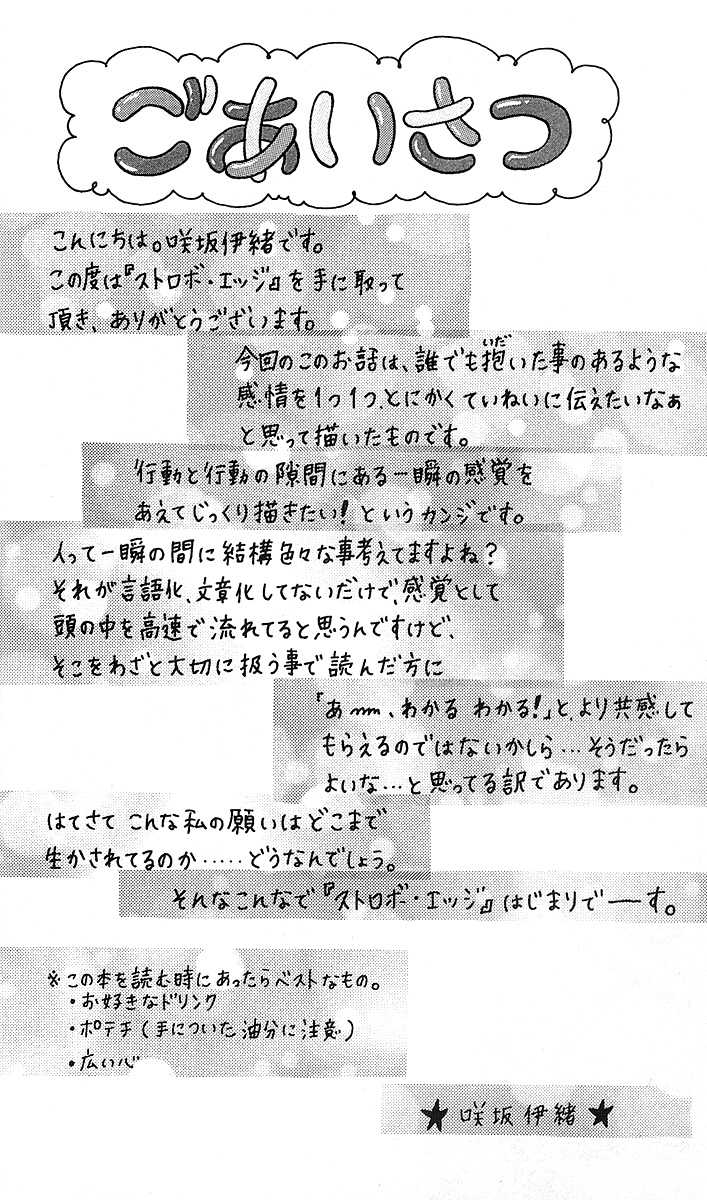 ごあいさつ
こんにちは。咲坂伊緒です。
この度は『ストロボ・エッジ』を手に取って
頂き、ありがとうございます。
今回のこのお話は、誰でも抱いた事のあるような
感情を1つ1つ、とにかくていねいに伝えたいなぁ
と思って描いたものです。
行動と行動の隙間にある一瞬の感覚を
あえてじっくり描きたい!というカンジです。
人って一瞬の間に結構色々な事考えてますよね?
それが言語化、文章化してないだけで、感覚として
頭の中を高速で流れてると思うんですけど、
そこをわざと大切に扱う事で読んだ方に
『あ〰〰、わかる わかる!』と、より共感して
もらえるのではないかしら…そうだったら
よいな…と思ってる訳であります。
はてさて こんな私の願いは どこまで
生かされてるのか……どうなんでしょう。
そんなこんなで『ストロボ・エッジ』はじまりでーす。
※この本を読む時にあったらベストなもの。
・お好きなドリンク
・ポテチ(手についた油分に注意)
・広い心
★ 咲坂伊緒 ★